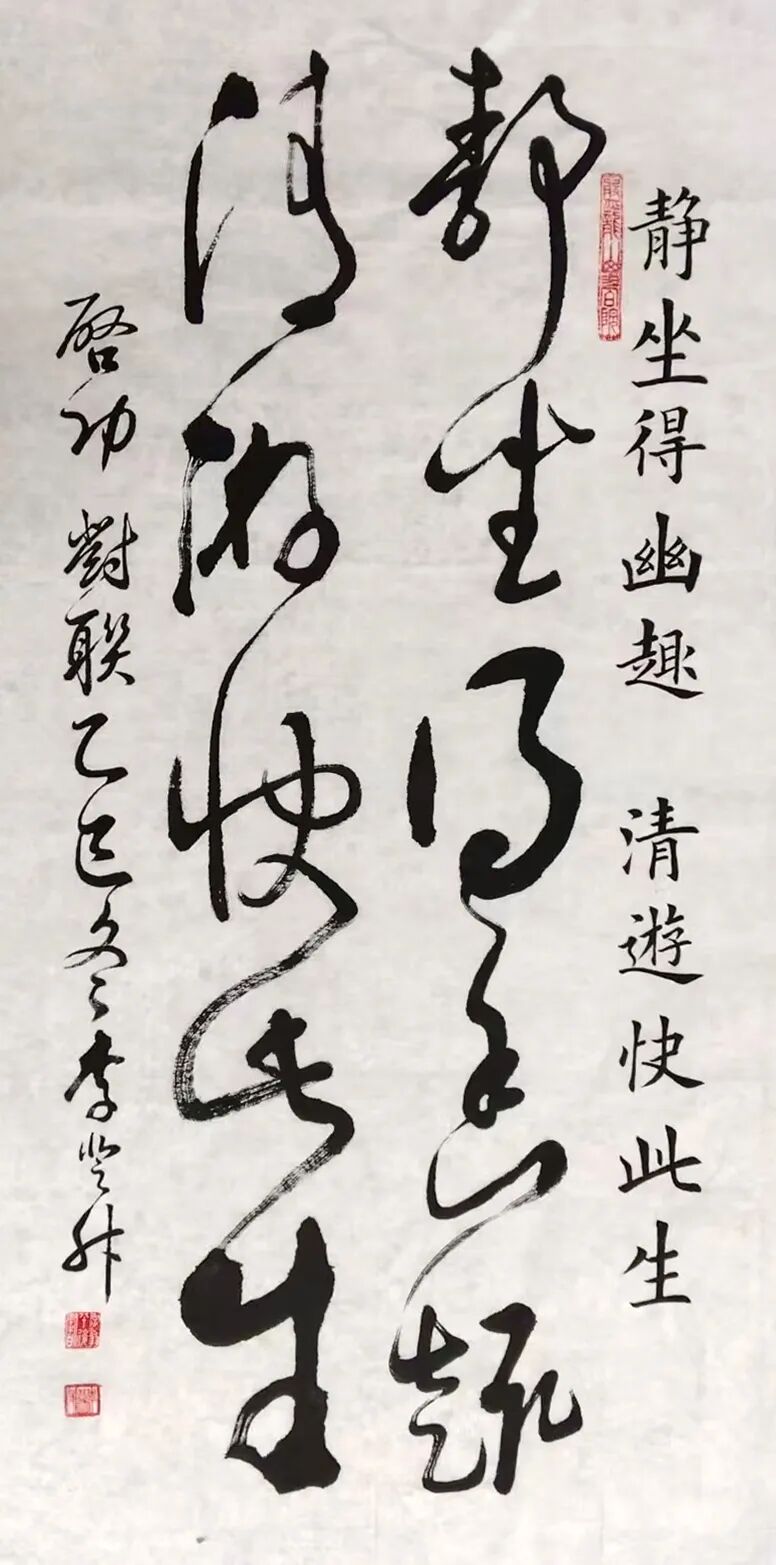 静坐得幽趣 清遊快此生
静坐得幽趣
清游快此生
启功對聯乙巳冬李登升